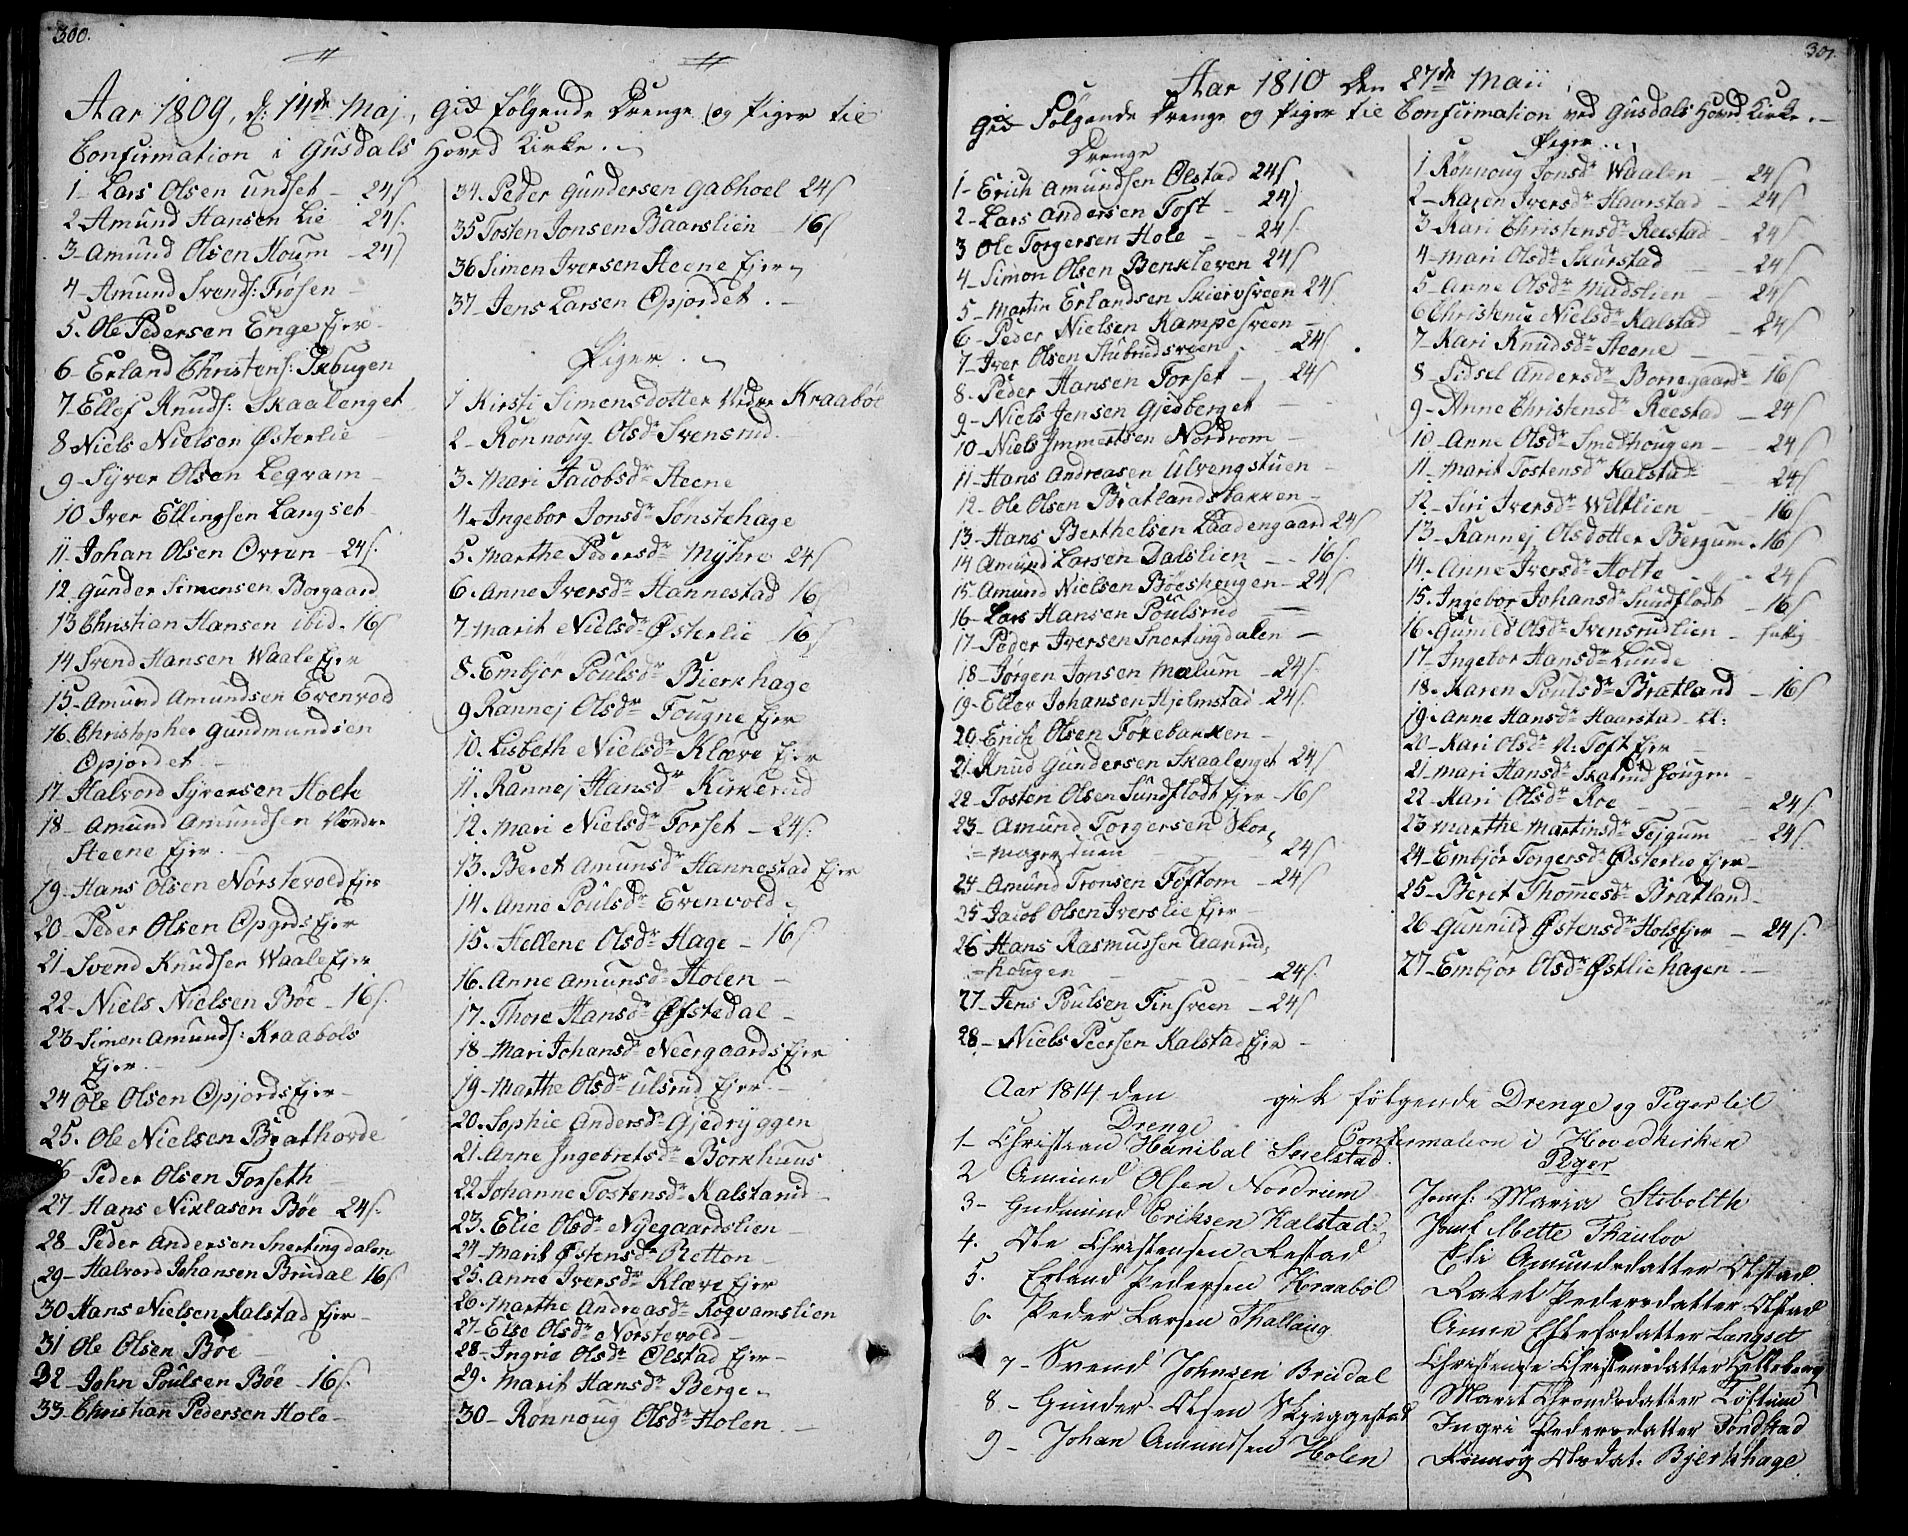 300.
Aar 1809, d: 14de Maj, gik følgende Drenge og Piger til
Confirmation i Gusdals Hoved Kirke.
1- Lars Olsen Undset - 24ſ
2- Amund Hansen Lie - 24ſ.
3- Amund Olsen Houm - 24ſ
4- Amund Svends: Frøsen -
5. Ole Pedersen Enge Ejer -
6- Erland Christens:
7- Ellef Knuds: Skaalenget
8 Niels Nielsen Østerlie -
9- Syver Olsen Legvam -
10 Iver Ellingsen Langset
11. Johan Olsen Ovren - 24ſ.
12 Gunder Simensen Borgaard
13 Christian Hansen ibid. 16ſ
14 Svend Hansen Waale Ejer
15- Amund Amundsen Evenvold
16. Christopher Gundmundsen
Opjordet -
17- Halvord Syversen Holte
18- Amund Amundsen Nordre
Steene Ejer -
19- Hans Olsen Nørstevold Ejer
20- Peder Olsen Opgrds Ejer
21- Svend Knudsen Waale Ejer
22- Niels Nielsen Bøe - 16ſ.
23- Simen Amunds: Kraabøls
Ejer. -
24 Ole Olsen Opjords Ejer -
25. Ole Nielsen Brathovde
26- Peder Olsen Forseth -
27- Hans Niklasen Bøe 24ſ.
28- Peder Andersen Snertingdalen
29- Halvord Johansen Brudal 16ſ
30 Hans Nielsen Kalstad Ejer -
31 Ole Olsen Bøe -
32- John Poulsen Bøe - 16ſ.
33- Christian Pedersen Hole -
34. Peder Gundersen Gabhoel 24ſ
35 Tosten Jonsen Baarslien - 16ſ
36 Simen Iversen Steene Ejer -
37- Jens Larsen Opjordet. -
Piger. -
1 Kirsti Simensdotter Nedre Kraabøl
2- Rønnoug Olsdr Svensrud.
3. Mari Jacobsdr Steene
4. Ingebor Jonsdr Sønstehage
5. Marthe Pedersdr Myhre 24ſ
6. Anne Iversdr Hannestad 16ſ
7. Marit Nielsdr Østerlie - 16ſ
8. Embjør Poulsdr Bierkhage
9 Rannej Olsdr Fougne Ejer
10. Lisbeth Nielsdr Klæve Ejer
11. Rannej Hansdr Kirkerud
12. Mari Nielsdr Forset - 24ſ.
13. Beret Amunsdr Hannestad Ejer
14. Anne Poulsdr Evenvold -
15. Hellene Olsdr Hage - 16ſ
16. Anne Amunsdr Holen -
17. Thore Hansdr Øfstedal -
18- Mari Johansdr Neergaards Ejer
19- Marthe Olsdr Ulsrud Ejer -
20. Sophie Andersdr Gjedryggen
21. Anne Ingebretsdr Borkhuus
22 Johanne Tostensdr Kalstarud -
23. Elie Olsdr Nyegaardslien -
24- Marit Østensdr Retton -
25. Anne Iversdr Klæve Ejer
26. Marthe Andreasdr Rogvamslien
27- Else Olsdr Nørstevold -
28- Ingrie Olsdr Ølstad Ejer -
29. Marit Hansdr Berge -
30- Rønnoug Olsdr Holen. -
301.
Aar 1810 Den 27de Maii,
Gik Følgende Drenge og Piger til Confirmation ved Gusdals Hoved Kirke. -
Drenge
1- Erich Amundsen Ølstad 24ſ
2- Lars Andersen Toft - 24ſ
3 Ole Torgersen Hole - 24ſ
4- Simon Olsen Benkleven 24ſ
5- Martin Erlandsen Skiervsveen 24ſ
6- Peder Nielsen Kampesveen -
7- Iver Olsen Stubrudsveen - 24ſ.
8- Peder Hansen Forset - 24ſ
9- Niels Jensen Gjedberget -
10- Niels Immertsen Nordrom -
11- Hans Andreasen Ulvengstuen -
12- Ole Olsen Bratlandsbakken -
13- Hans Berthelsen Laadengaard 24ſ
14 Amund Larsen Dalslien - 16ſ.
15- Amund Nielsen Bøeshougen - 24ſ
16- Lars Hansen Poulsrud -
17- Peder Iversen Snertingdalen -
18- Jørgen Jonsen Mælum - 24ſ.
19- Ellev Johansen Hjelmstad - 24ſ.
20- Erich Olsen Fokebakken -
21 Knud Gundersen Skaalenget 24ſ
22- Tosten Olsen Sundflodt Ejer - 16ſ
23- Amund Torgersen Skor
= mager tuen - 24ſ
24- Amund Tronsen Toftom - 24ſ
25 Jacob Olsen Iverslie Ejer -
26 Hans Rasmussen Aanrud
= hougen - 24ſ.
27- Jens Poulsen Tinsveen - 24ſ
28- Niels Peersen Kalstad Ejer -
Piger.
1 Rønnoug Jonsdr Waalen - 24ſ
2- Karen Iversdr Haarstad - 24ſ
3- Kari Christensdr Reestad - 24ſ
4- Mari Olsdr Skurstad - 24ſ
5- Anne Olsdr Madslien - 24ſ
6 Christence Nielsdr Kalstad - 24ſ
7- Kari Knudsdr Steene -
8- Sidsel Andersdr Borregaard - 16ſ
9- Anne Christensdr Reestad - 24ſ
10- Anne Olsdr Smedhougen - 24ſ
11- Marit Tostensdr Kalstad - 24ſ
12- Siri Iversdr Weltlien - 16ſ
13- Rannej Olsdotter Bergum - 16ſ
14- Anne Iversdr Holte - 24ſ
15. Ingebor Johansdr Sundflodt - 16ſ
16. Gunild Olsdr Svensrudlien - fattig
17- Ingebor Hansdr Lunde
18- Karen Poulsdr Bratland - 16ſ
19. Anne Hansdr Haarstad -
20- Kari Olsdr N: Toft Ejer -
21- Mari Hansdr Skatrud Hougen -
22- Kari Olsdr Roe - 24ſ.
23 Marthe Martinsdr Fejgum - 24ſ.
24- Embjør Torgersdr Østerlie Ejer -
25- Beret Thommesdr Bratland -
26- Gunnild Østensdr Hols Ejer - 24ſ.
27- Embjør Olsdr Østliehagen. -
Aar 1814 den gik følgende Drenge og Piger til
Confirmation i Hovedkirken
Drenge
1- Christian Hanibal Seielstad.
2 Amund Olsen Nordrum
3- Gudmund Eriksen Kalstad
4. Ole Christensen Restad
5. Erland Pedersen Kraabøl
6. Peder Larsen Thallaug
7- Svend Johnsen Brudal
8- Gunder Olsen Skjeggestad
9- Johan Amundsen Holen
Piger
Jomf: Maria Stibolth
Jomf Mette Thaulov
Eli Amundsdatter Olstad
Rakel Pedersdatter Olstad
Anne Estefsdatter Langset
Christense Christensdatter Helleberg
Marit Throndsdatter Toftum
Ingri Pedersdatter Tondstad
Rønnog Olsdat: Bjerkhage.